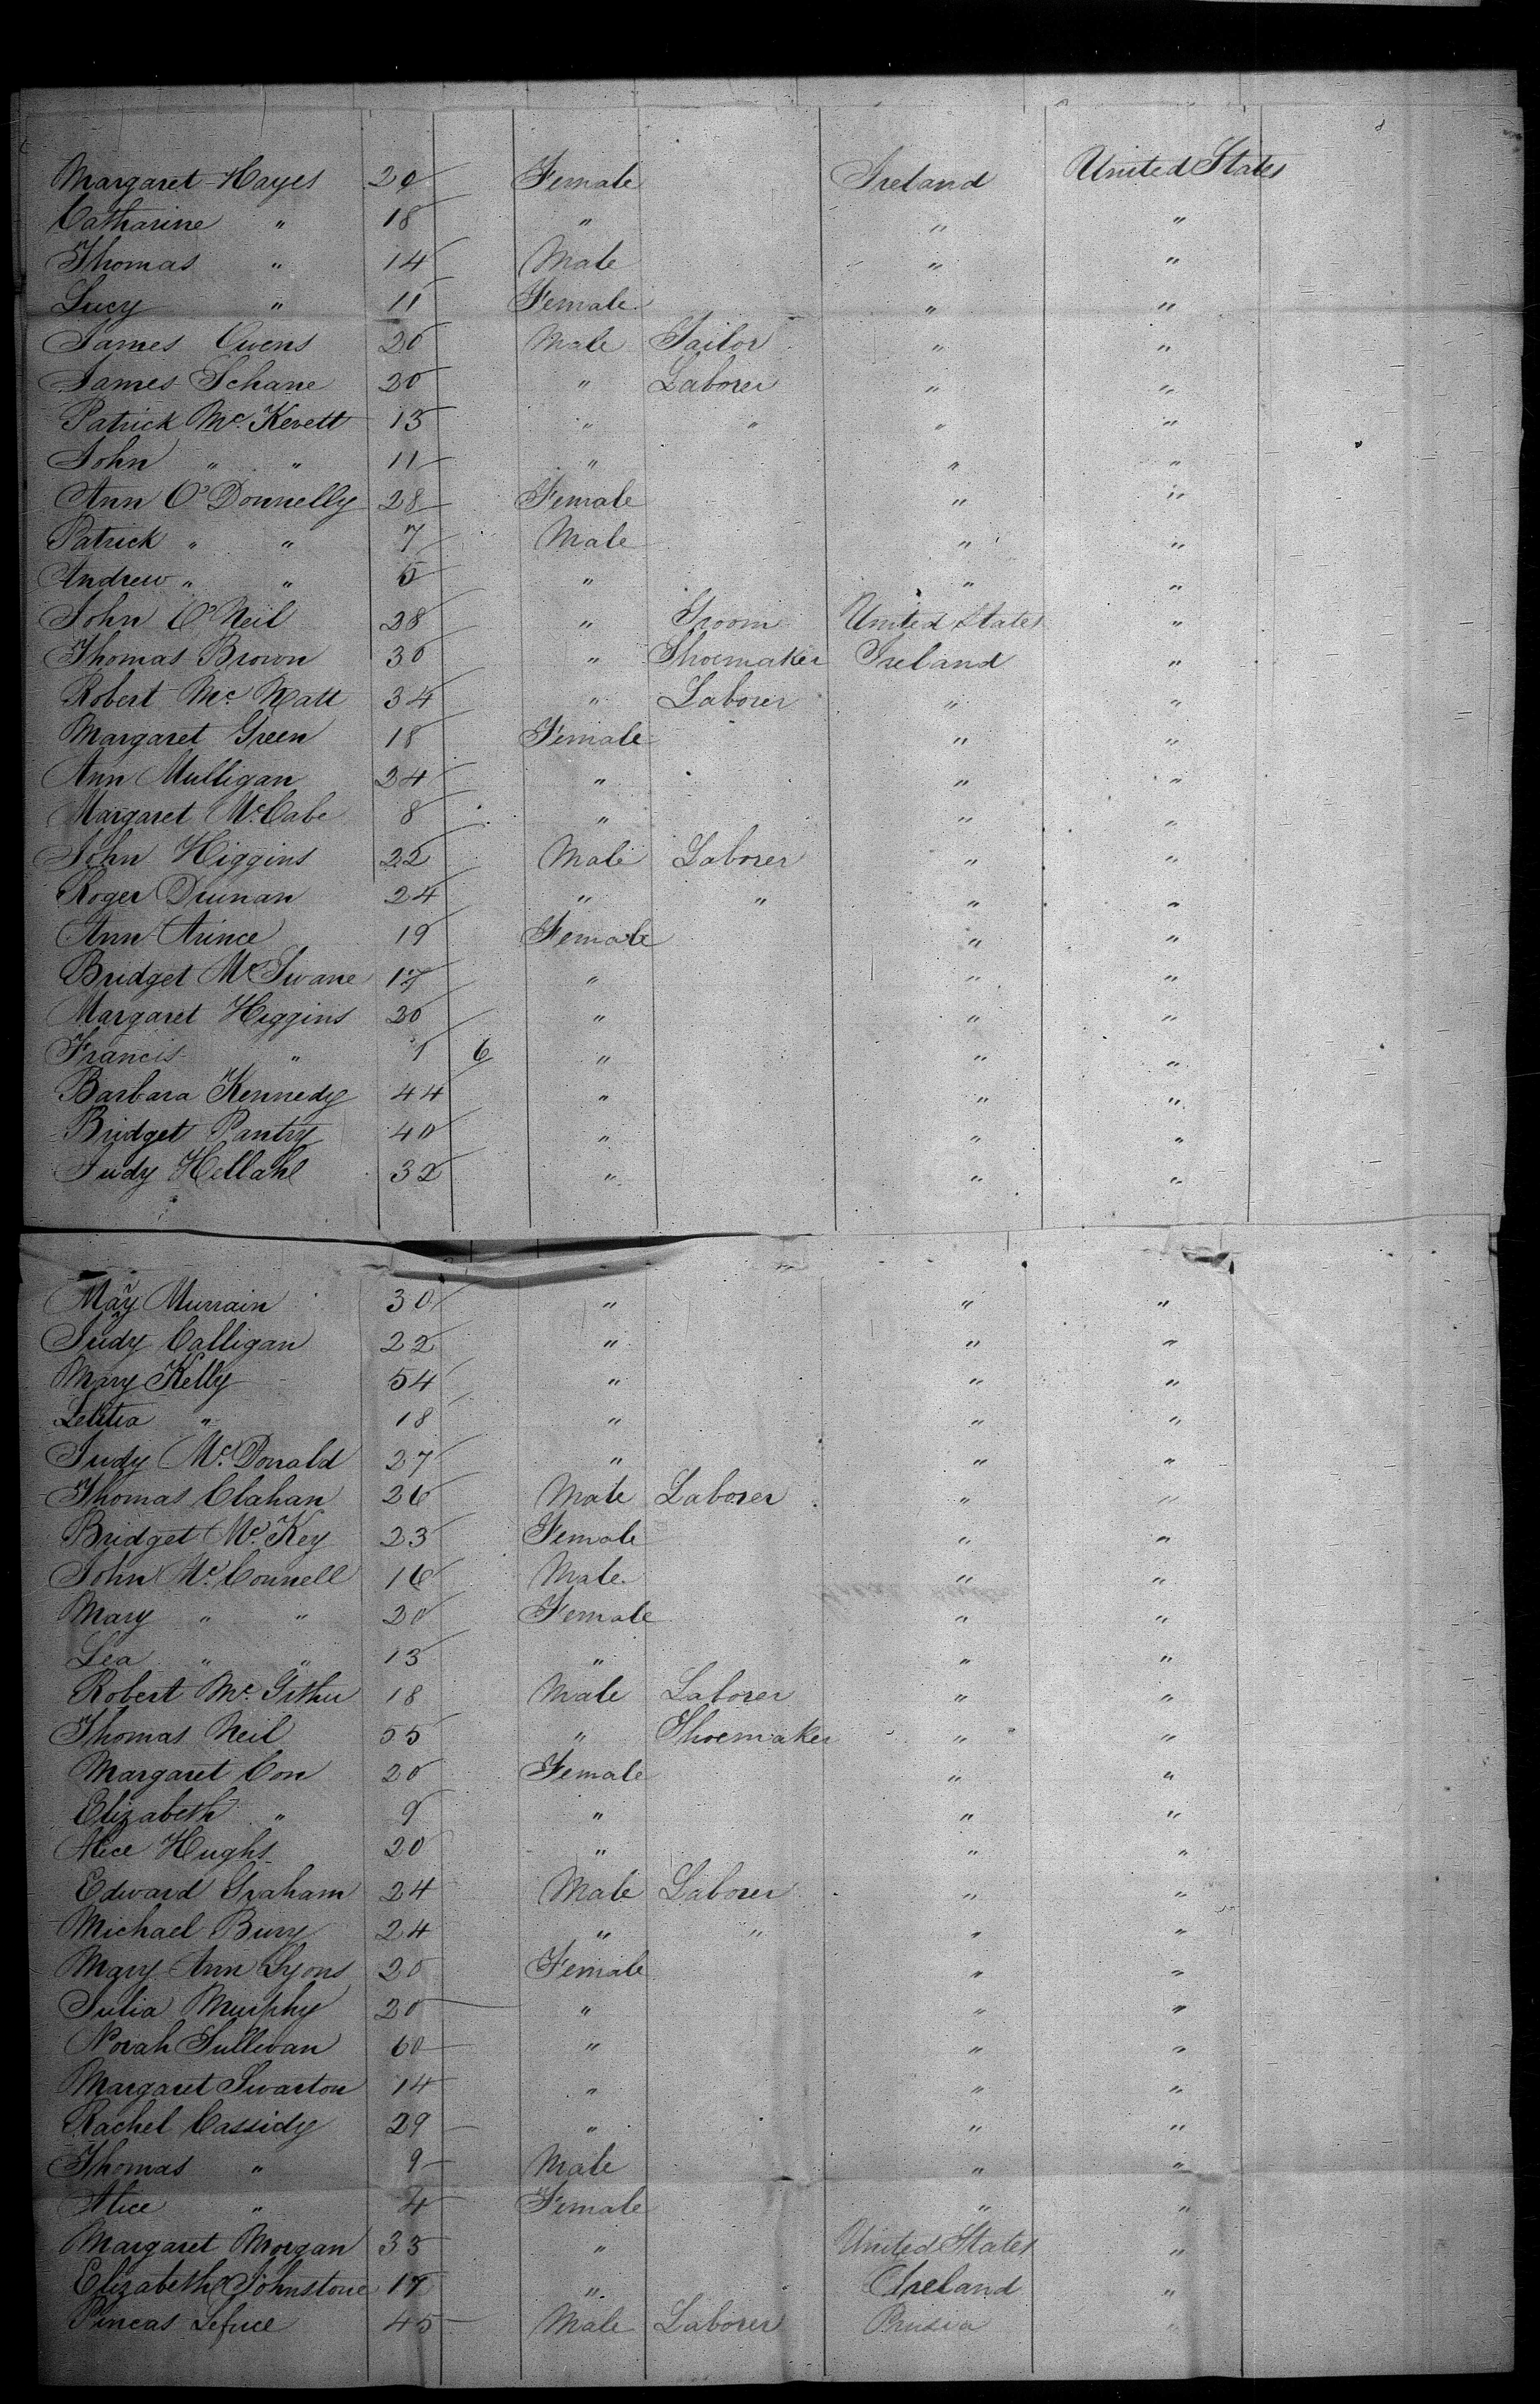 Margaret Hayes 29 Female Ireland United States
Catharine " 18 " " "
Thomas " 14 Male " "
Lucy " 11 Female " "
James Owens 20 Male Tailor " "
James Schane 20 " Laborer " "
Patrick Mc. Kevett 13 " " " "
John " " 11 " " "
Ann O'Donnelly 28 Female " "
Patrick " " 7 Male " "
Andrew " " 5 " " "
John O'Neil 28 " Groom United States "
Thomas Brown 30 " Shoemaker Ireland "
Robert Mc. Natt 34 " Laborer " "
Margaret Green 18 Female " "
Ann Mulligan 24 " " "
Margaret Mc.Cabe 8 " " "
John Higgins 22 Male Laborer " "
Roger Drunan 24 " " " "
Ann Arince 19 Female " "
Bridget Mc Swane 17 " " "
Margaret Higgins 20 " " "
Francis " 1 6 " " "
Barbara Kennedy 44 " " "
Bridget Pantry 40 " " "
Judy Hellahl 32 " " "
Mary Murrain 30 " " "
Judy Calligan 22 " " "
Mary Kelly 54 " " "
Letitia " 18 " " "
Judy Mc. Donald 27 " " "
Thomas Clahan 26 Male Laborer " "
Bridget Mc. Key 23 Female " "
John Mc. Connell 16 Male " "
Mary " " 20 Female " "
Lea " " 13 " " "
Robert Mc. Githur 18 Male Laborer " "
Thomas Neil 55 " Shoemaker " "
Margaret Con 20 Female " "
Elizabeth " 9 " " "
Alice Hughs 20 " " "
Edward Graham 24 Male Laborer " "
Michael Bury 24 " " " "
Mary Ann Lyons 20 Female " "
Julia Murphy 20 " " "
Norah Sullivan 60 " " "
Margaret Swarton 14 " " "
Rachel Cassidy 29 " " "
Thomas " 9 Male " "
Alice " 4 Female " "
Margaret Morgan 33 " United States "
Elizabeth Johnstone 17 " Ireland "
Pincas Lefuce 45 Male Laborer Prusia "